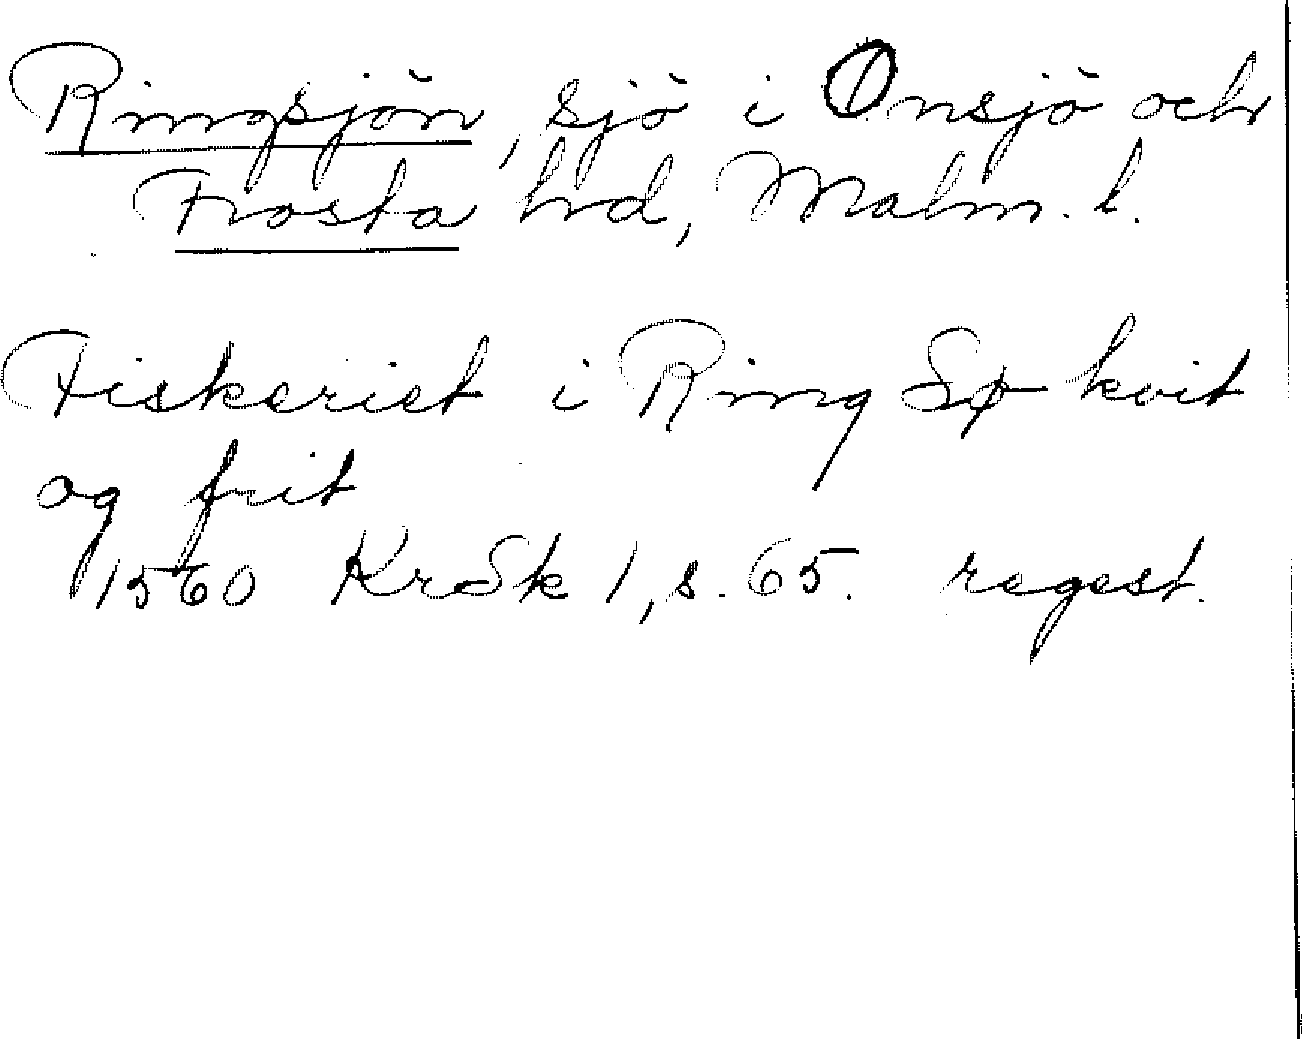 Ringsjön, sjö i Onsjö och
Frosta hrd, Malm. l.
Fiskeriet i Ring Sø kvit
og frit
1560 KrSk 1, s. 65. regest.